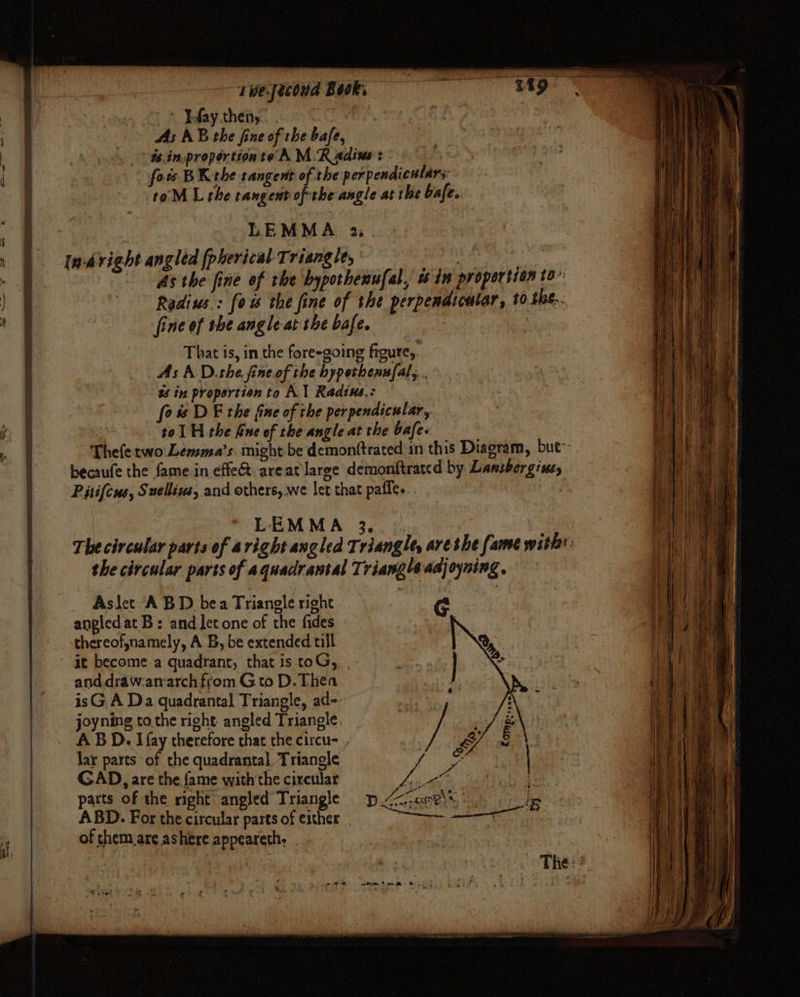 The second Book. 119
I ſay then,
As A B the ſine of the baſe,
is in proportion to A M Radius:
ſo is B K the tangent of the perpendicular,
to M L the tangent of the angle at the baſe.
LEMMA 2.
In a right angled ſpherical Triangle,
As the ſine of the hypothenuſal, is in proportion to
Radius: ſo is the ſine of the perpendicular, to the
ſine of the angle at the baſe.
That is, in the fore-going figure,
As A D the ſine of the hypothenuſal,
is in proportion to A I Radius:
ſo is D F the ſine of the perpendicular,
to I H the ſine of the angle at the baſe.
Theſe two Lemma's might be demonſtrated in this Diagram, but
becauſe the ſame in effect are at large demonſtrated by Lansbergius,
Pitiſcus, Snellius, and others, we let that paſſe.
LEMMA 3.
The circular parts of a right angled Triangle, are the ſame with
the circular parts of a quadrantal Triangle adjoyning.
As let A B D be a Triangle right
angled at B: and let one of the ſides
thereof, namely, A B, be extended till
it become a quadrant, that is to G,
and draw an arch from G to D. Then
is G A D a quadrantal Triangle, ad-
joyning to the right angled Triangle
A B D. I ſay therefore that the circu-
lar parts of the quadrantal Triangle
GAD, are the ſame with the circular
parts of the right angled Triangle
ABD. For the circular parts of either
of them are as here appeareth.
G
A
comp.
comp.
D
comp.
B
The